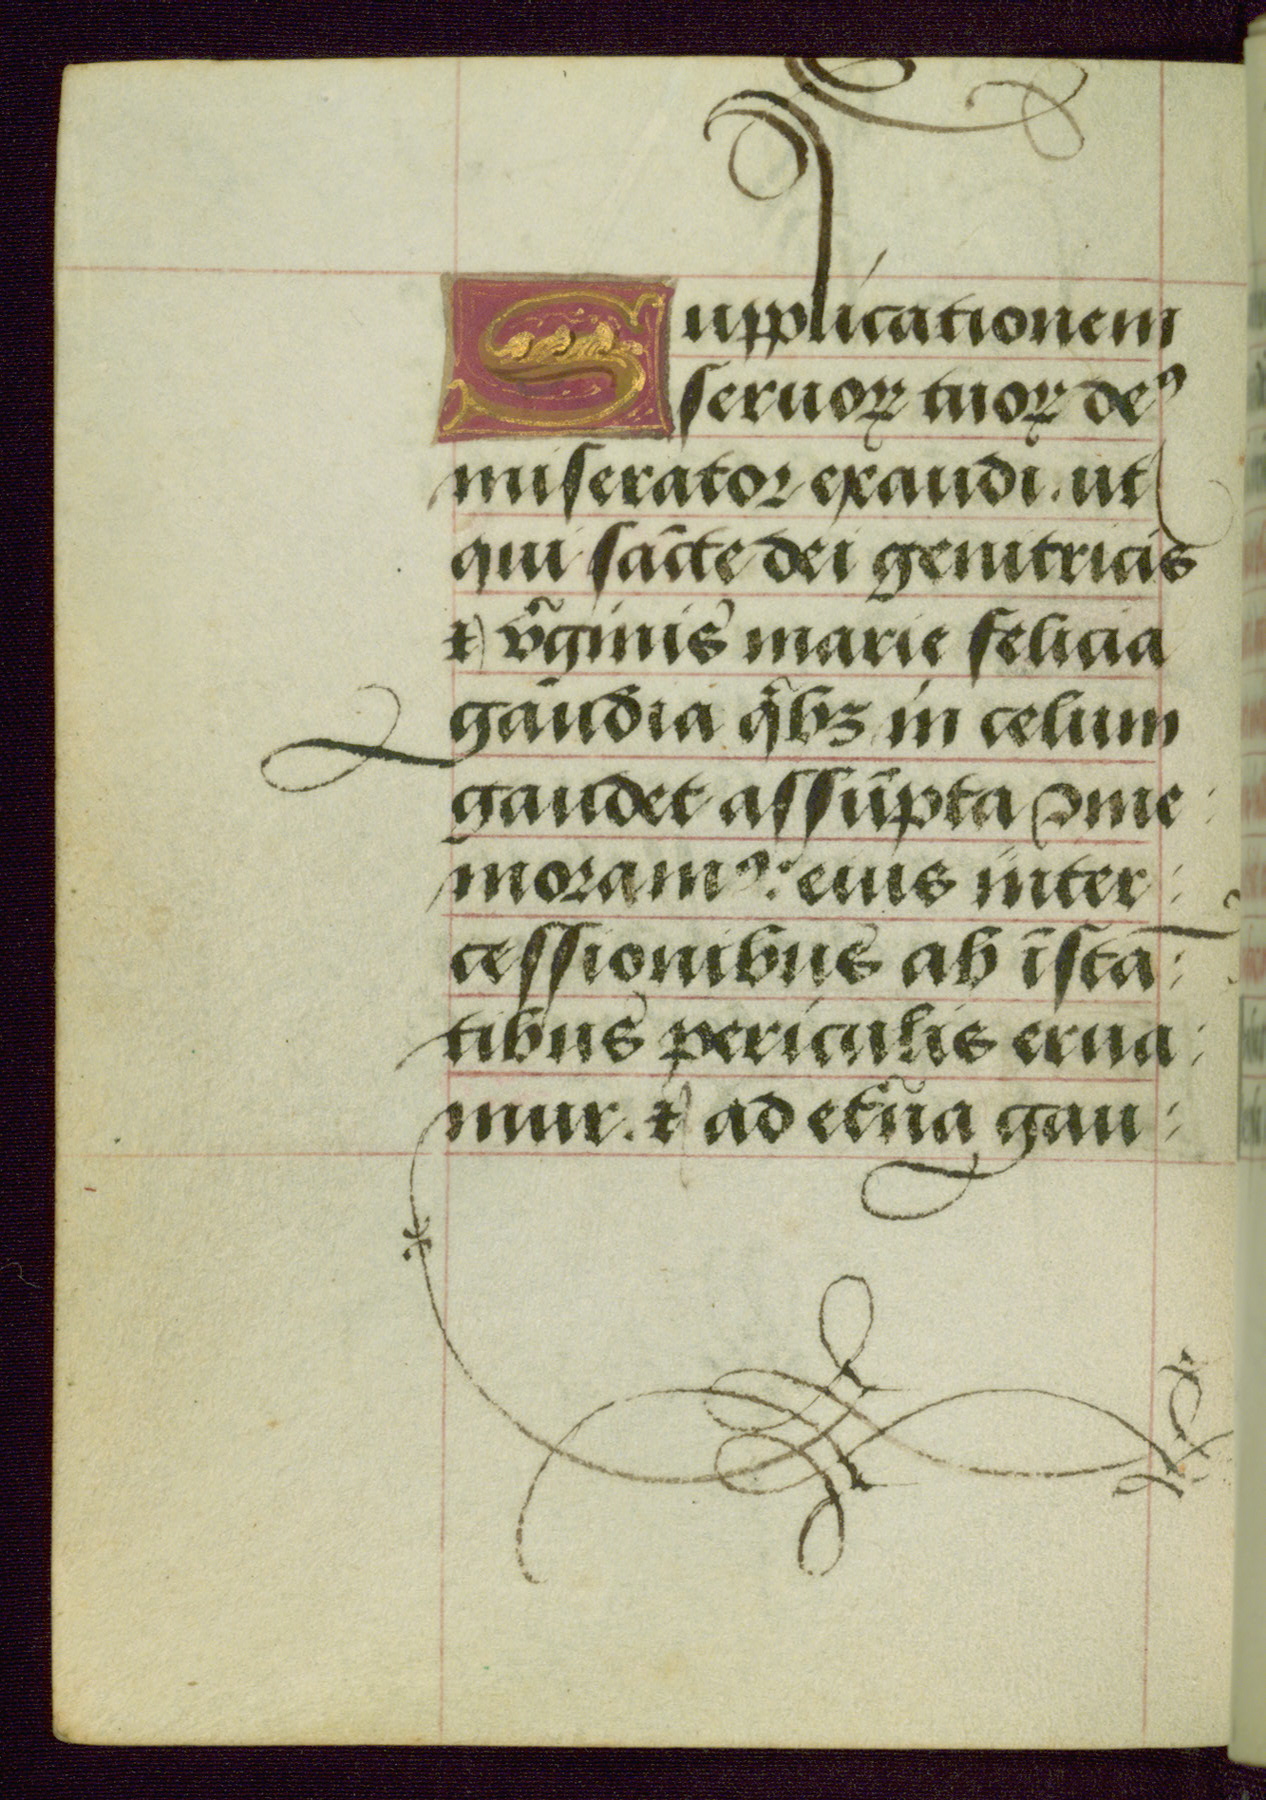 Supplicationem
seruoꝝ tuoꝝ deꝰ
miserator exaudi. ut
qui sācte dei genitricis
⁊ v̄ginis marie felicia
gaudia q̄bꝫ in celum
gaudet assūpta ꝯme
moramꝰ: eius inter
cessionibus ab īsta
tibus periculis erua
mur. ⁊ ad et̄na gau